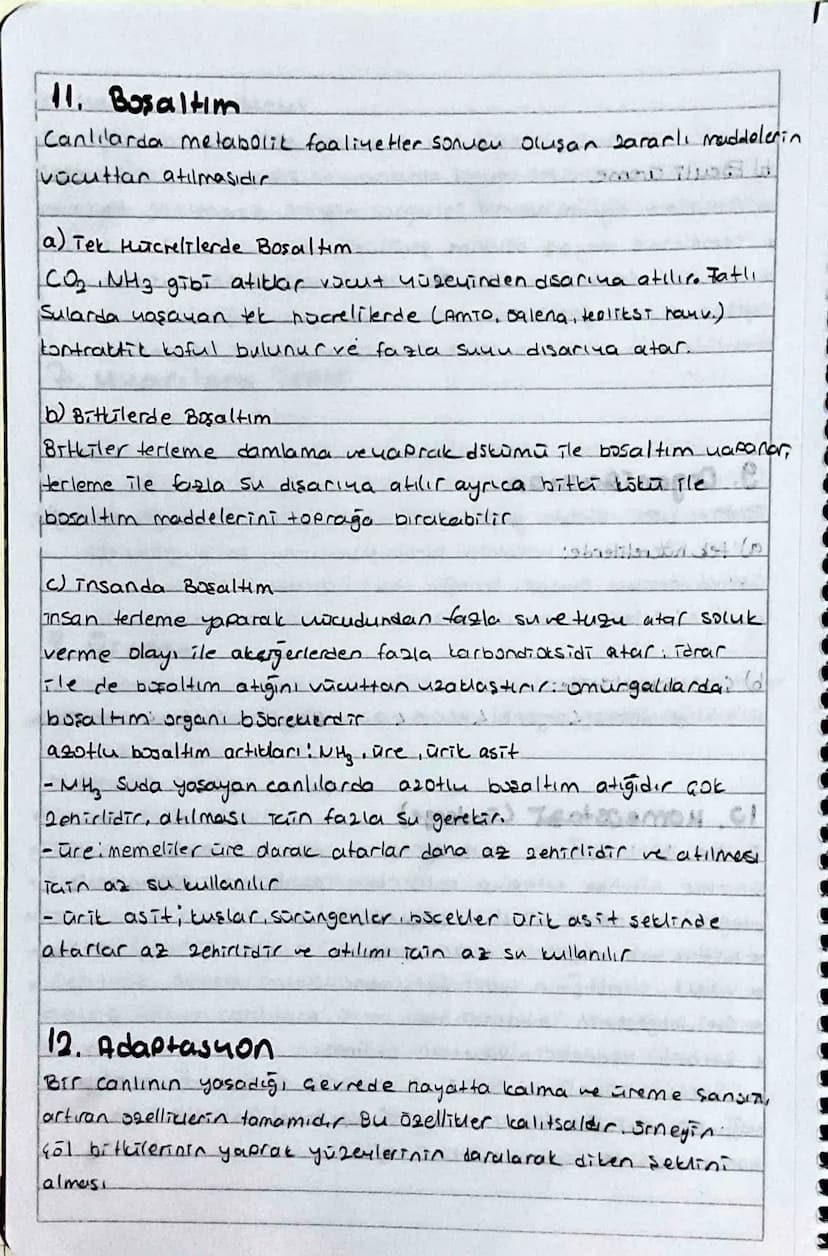 11. Boşaltım
Canlılarda metabolik faaliyetler sonucu oluşan zararlı maddelerin
vücuttan atılmasıdır
a) Tek Hücrelilerde Boşaltım
CO₂, NH₃ gibi atıklar vücut yüzeyinden dışarıya atılır. Tatlı
Sularda yaşayan tek hücrelilerde (Amip, öglena, terliksi hayv.)
kontraktil koful bulunur ve fazla suyu dışarıya atar.
b) Bitkilerde Boşaltım
Bitkiler terleme damlama ve yaprak dökümü ile boşaltım yaparlar,
terleme ile fazla su dışarıya atılır ayrıca bitki kökü ile
boşaltım maddelerini toprağa bırakabilir
c) insanda Boşaltım
insan terleme yaparak vücudundan fazla su ve tuzu atar soluk
verme olayı ile akciğerlerden fazla karbondioksidi atar. idrar
ile de boşaltım atığını vücuttan uzaklaştırır. omurgalılarda
boşaltım organı böbreklerdir
azotlu boşaltım artıkları: NH₃, üre, ürik asit
- NH₃ Suda yaşayan canlılarda azotlu boşaltım atığıdır çok
zehirlidir, atılması için fazla su gerekir.
- üre: memeliler üre olarak atarlar daha az zehirlidir ve atılması
için az su kullanılır
- ürik asit; kuşlar, sürüngenler, böcekler ürik asit şeklinde
atarlar az zehirlidir ve atılımı için az su kullanılır
12. Adaptasyon
Bir canlının yaşadığı çevrede hayatta kalma ve üreme şansını,
artıran özelliklerin tamamıdır Bu özellikler kalıtsaldır. örneğin
çöl bitkilerinin yaprak yüzeylerinin daralarak diken şeklini
alması